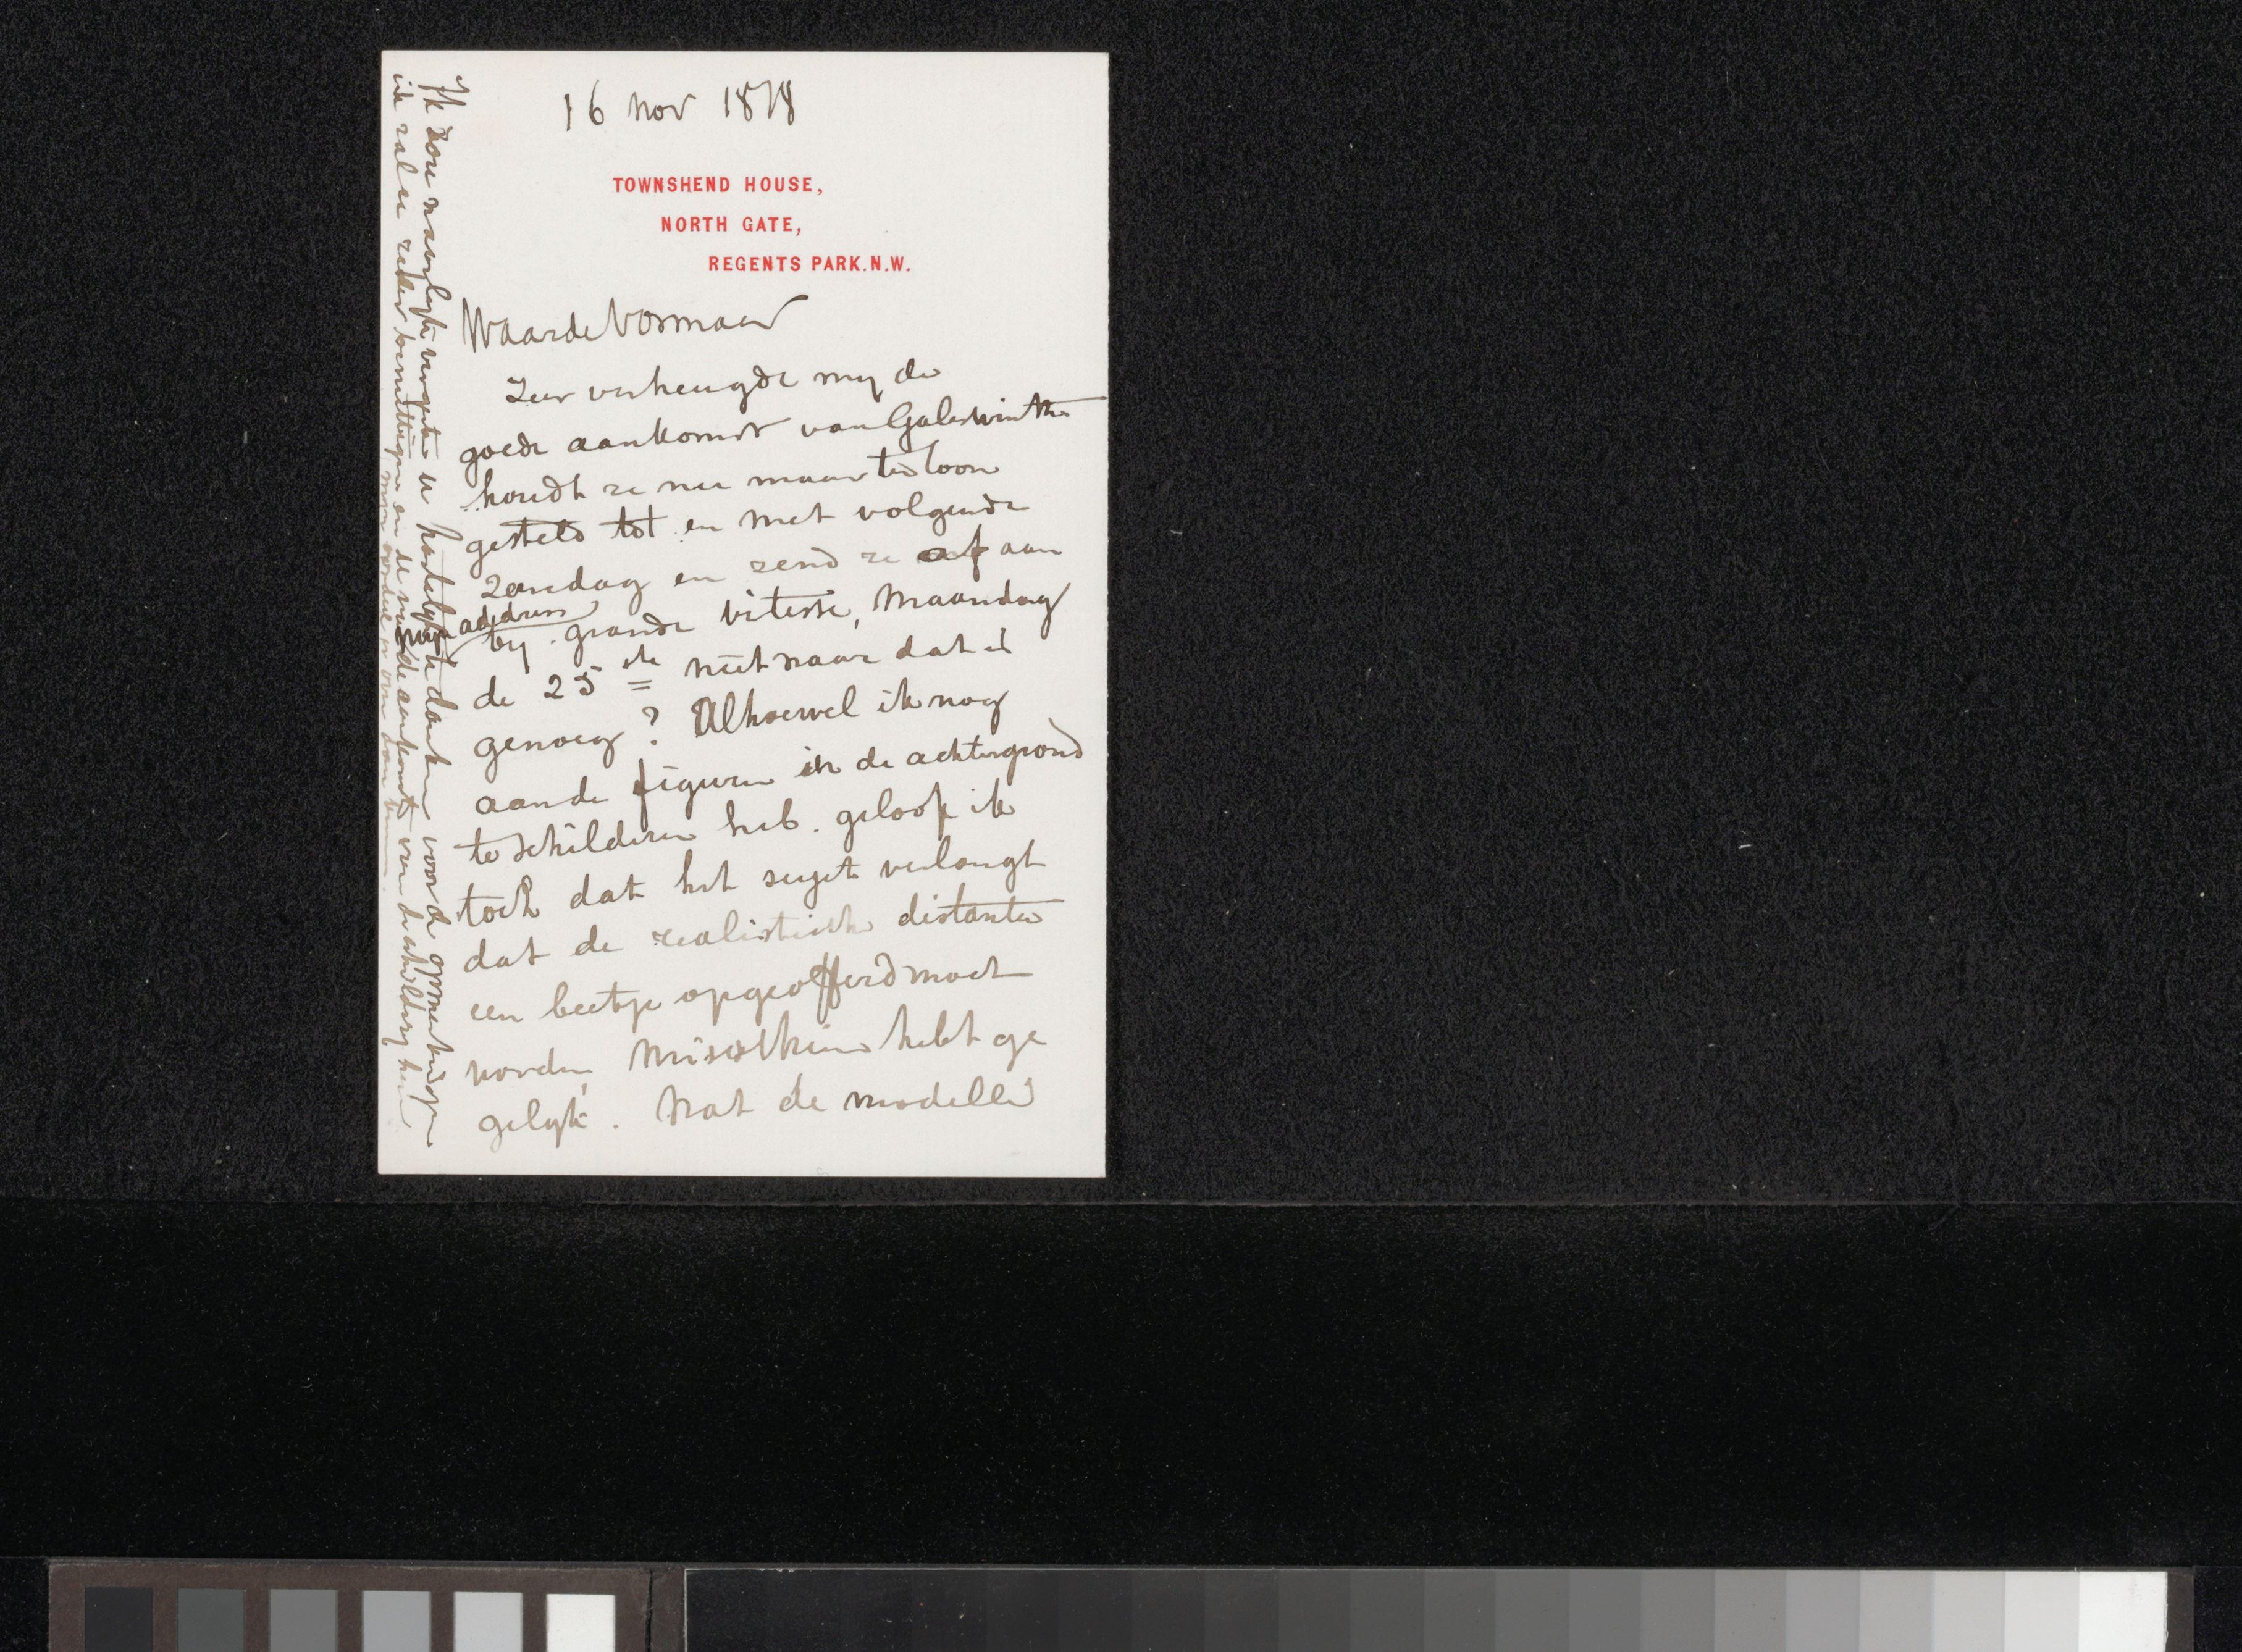 16 nov 1878
TOWNSHEND HOUSE,
NORTH GATE,
REGENTS PARK.N.W.
Waarde Vosmaer
Zeer verheugde my de
goede aankomst van Galeswinthe
houdt ze nu maar ten toon
gesteld tot en met volgende
Zondag en zend ze af aan
myn address
by grande vitesse, Maandag
de 25ste niet waar dat is
genoeg? Alhoewel ik nog
aan de figuren in de achtergrond
te schilderen heb. geloof ik
toch dat het sujet verlangt
dat de realistische distantie
een beetje opgeofferd moet
worden, misschien hebt ge
gelyk. Wat de modellé
Ik zou waarlyk vergeten u hartelyk te danken voor de opmerkingen
ik zal ze zeker benuttigen en de van de aankomst van de schildery hen
myn oordeel er over doen